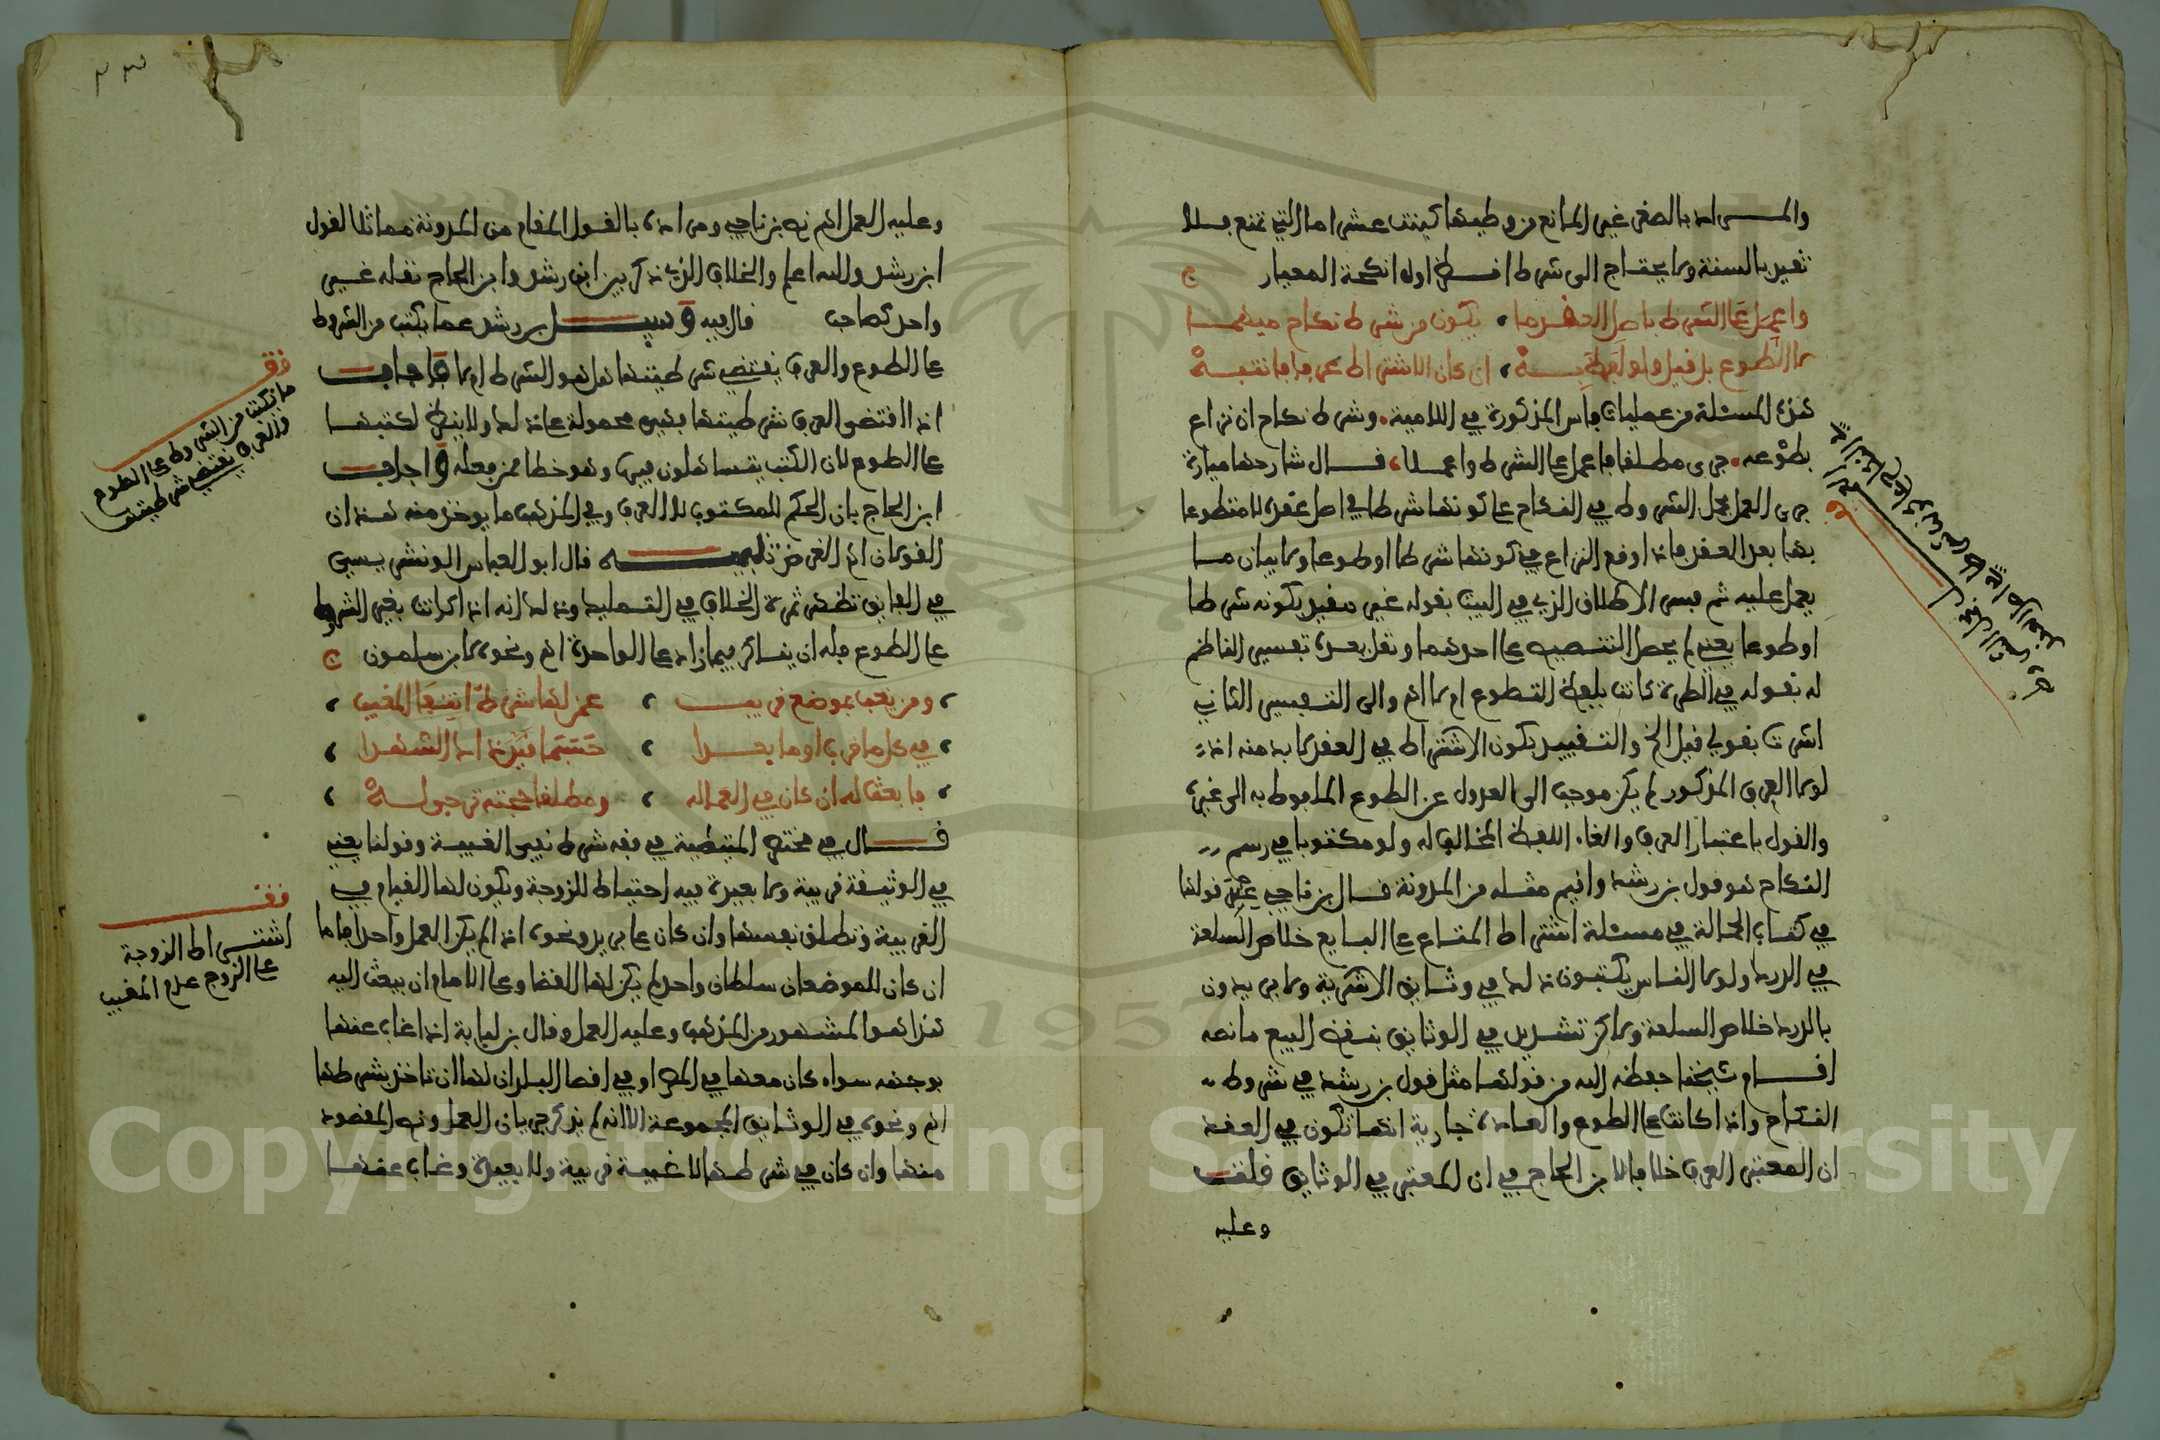 والمراد بالصغر غير المانع من وطيها كبنت عشر اما التي تمنع فلا
تعين بالسنة ولا يحتاج الى شرط انظر اول انكحة المعيار
واعمل على الشرط باصل العقد ما يكون من شرط نكاح فيهما
لا الطوع بل قيل ولو لفظ به ان كان الاشتراط عرفا فانتبه
هذه المسئلة من عمليات فاس المذكورة في اللامية وشرط نكاح ان نزاع
بطوعه جرى مطلقا فاعمل على الشرط واعملا قال شارحها ميارة
جرى العمل بحمل الشروط في النكاح على كونها شرطا في اصل عقده لا متطوعا
بها بعد العقد فاذا وقع النزاع في كونها شرطا او طوعا ولا بيان مما
يعمل عليه ثم فسر الاطلاق الذي في البيت بقوله غير مقيد بكونه شرطا
او طوعا يعني لم يحصل التنصيص على احدهما ونقل بعده تفسير الناظم
له بقوله في الطرة كانت بلفظ التطوع ام لا اه والى التفسير الثاني
اشرت بقولي قيل الخ والتقييد بكون الاشتراط في العقد لا بد منه اذ
لولا العرف المذكور لم يكن موجب الى العدول عن الطوع الملفوظ به الى غيره
والقول باعتبار العرف والغاء اللفظ المخالف له ولو مكتوبا في رسم
النكاح هو قول بن رشد واقيم مثله من المدونة قال بن ناجي عند قولها
في كتاب الحمالة في مسئلة اشتراط المبتاع على البايع خلاص السلعة
في الدرك ولولا الناس يكتبون ذلك في وثايق الاشرية ولا يريدون
بالدرك خلاص السلعة ولاكن تشديد في الوثايق بنقض البيع ما نصه
اقام شيخنا حفظه الله من قولها مثل قول بن رشد في شروط
النكاح واذا كانت على الطوع والعادة جارية انها تكون في العقد
ان المعتبر العرف خلافا لابن الحاج في ان المعتبر في الوثايق قلت
وعليه
وعليه العمل اليوم نص بن ناجي ومراده بالقول المقام من المدونة مماثلا لقول
ابن رشد والله اعلم والخلاف الذي ذكر بين ابن رشد وابن الحاج نقله غير
واحد كصاحب قال فيه وسيل بن رشد عما يكتب من الشروط
على الطوع والعرف يقتضي شرطيتها هل هو الشرط ام لا فاجاب
اذا اقتضى العرف شرطيتها فهي محمولة على ذلك ولا ينظر لكتبها
على الطوع لان الكتب يتساهلون فيها وهو خطا ممن فعله واجاب
ابن الحاج بان الحكم للمكتوب لا للعرف وفي المذهب ما يوخذ منه هذان
القولان اه الغرض تنبيه قال ابو العباس الونشريسي
في الفايق تظهر ثمرة الخلاف في التمليك وذلك انه اذا كانت بغير الشروط
على الطوع فله ان يناكر فيما زاد على الواحدة اه ونحوه لابن سلمون
ومن يغب بموضع قريب عمن لها شرط انتفا المغيب
في كل ما قرب او ما بعدا حتما قبل ذاك الشهدا
فابعث له ان كان في العماله ومطلقا حجته ترجى له
قال في مختصر المتيطية في فقه شرط نفي الغيبة وقولنا يعني
في الوثيقة قريبة ولا بعيدة فيه احتياط للزوجة ويكون لها القيام في
القريبة وتطلق نفسها وان كان على بريد ونحوه اذا لم يكن العمل واحدا فاما
ان كان للموضعان سلطان واحد لم يكن لها القضا وعلى الامام ان يبعث اليه
هذا هو المشهور من المذهب وعليه العمل وقال بن لبابة اذا غاب عنها
بوجهه سواء كان معها في المصر او في اقصا البلدان لها ان تاخذ بشرطها
اه ونحوه في الوثايق المجموعة الا انه لم يذكر جريان العمل ونص المقصود
منها وان كان في شرطها لا غيبة قريبة ولا بعيدة وغاب عنها
قف
ما يكتب من الشروط على الطوع
والعرف يقتضي شرطيتها
قف
اشتراط الزوجة
على الزوج عدم المغيب
Copyright © King Saud University
1957